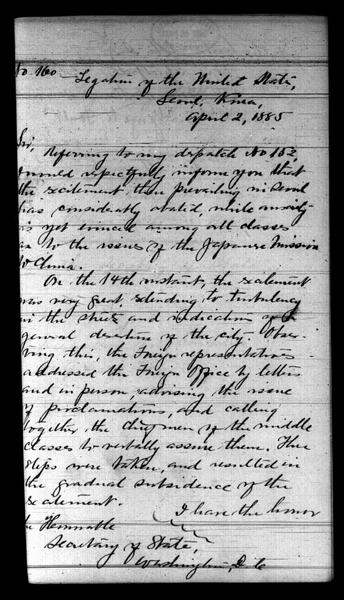 No. 160
Legation of the United States,
Seoul, Korea,
April 2, 1885
Sir,
Referring to my dispatch No 152,
I would respectfully inform you that
the excitement then prevailing in Seoul
has considerably abated, while anxiety
is not among all classes
as to the issues of the Japanese Mission
to China.
On the 14th instant, the excitement
was very great, extending to turbulency
in the streets and indications of a
general desertion of the city. Obser
ving this, the Foreign representatives
addressed the Foreign Office by letters
and in person, advising the issue
of proclamations, and calling
together the chief men of the middle
classes to verbally assure them. These
steps were taken, and resulted in
the gradual subsidence of the
excitement.
I have the honor
he Honorable
Secretary of State,
Washington, D. C.